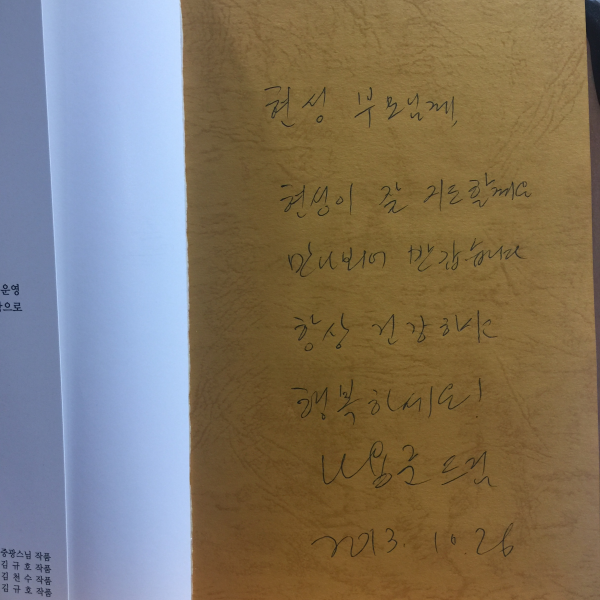 운영
으로
중광스님 작품
김 규 호 작품
김 천 수 작품
김 규 호 작품
현성 부모님께,
현성이 잘 지도할께요
만나뵈어 반갑습니다
항상 건강하시고
행복하세요!
드림
2013. 10. 26